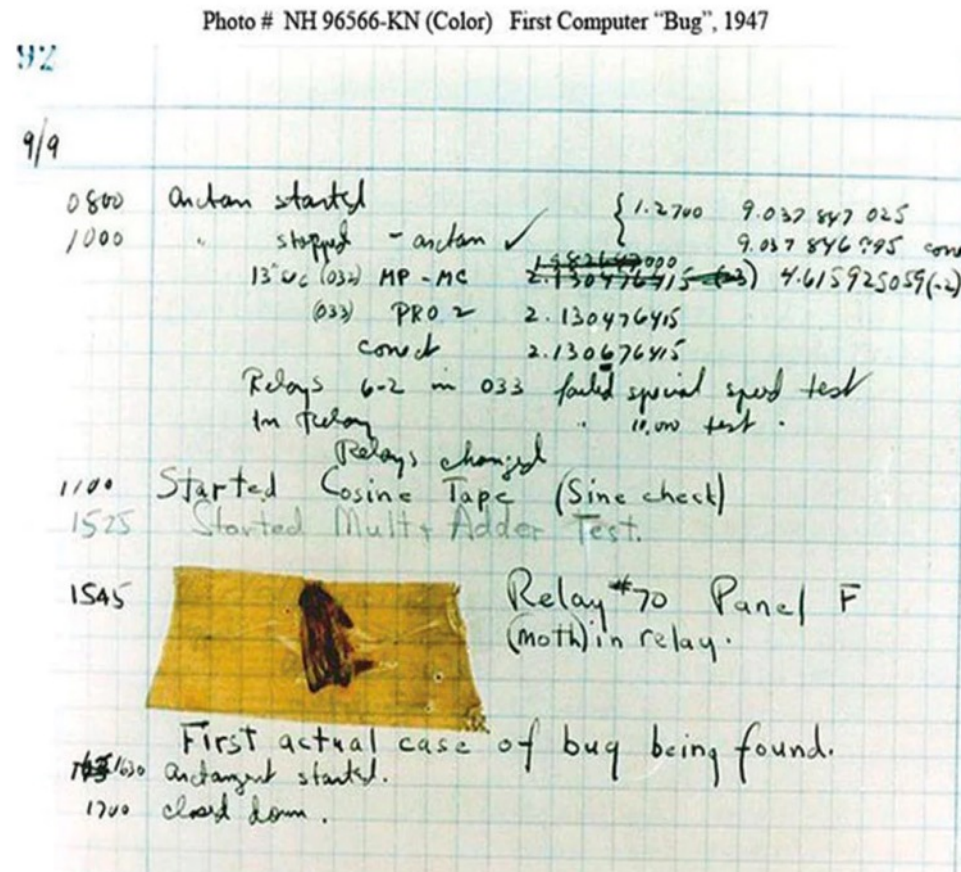 Photo # NH 96566-KN (Color) First Computer “Bug”, 1947
92
9/9
0800 Antan started { 1.2700 9.037 847 025
1000 " stopped - antan ✓ 9.037 846 995 con
13" uc (032) MP - MC 2.130476415 (-3) 4.615925059(-2)
(033) PRO 2 2.130476415
conect 2.130676415
Relays 6-2 in 033 failed special speed test
In Relay " 10,000 test .
Relays changed
1100 Started Cosine Tape (Sine check)
1525 Started Mult + Adder Test.
1545 Relay #70 Panel F
(moth) in relay.
First actual case of bug being found.
1630 Antangent started.
1700 closed down .